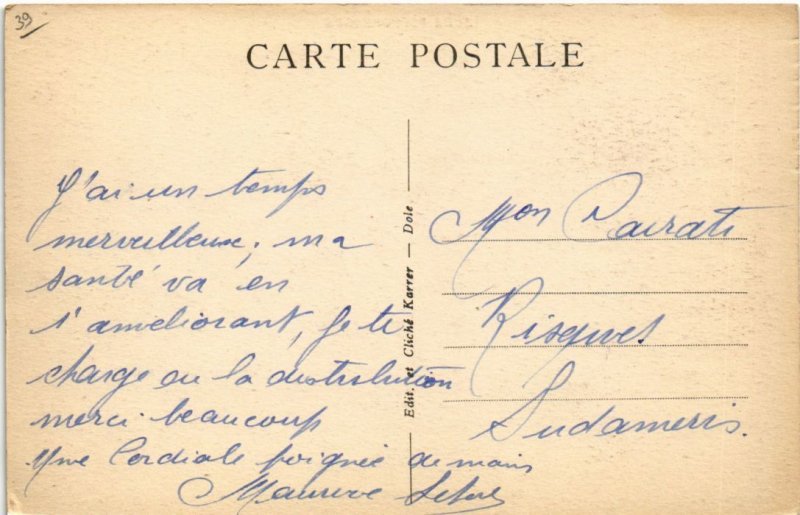 39
CARTE POSTALE
J'ai un temps
merveilleux, ma
santé va en
s'améliorant, je te
charge de la distribution
merci beaucoup
Une Cordiale poignée de main
Maurice
Edit. et Cliché Karrer — Dole
Mon Cairati
Risques
Sudameris.